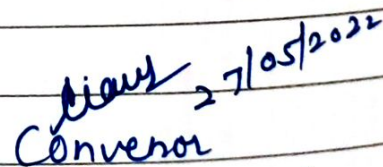 27/05/2022
Convenor